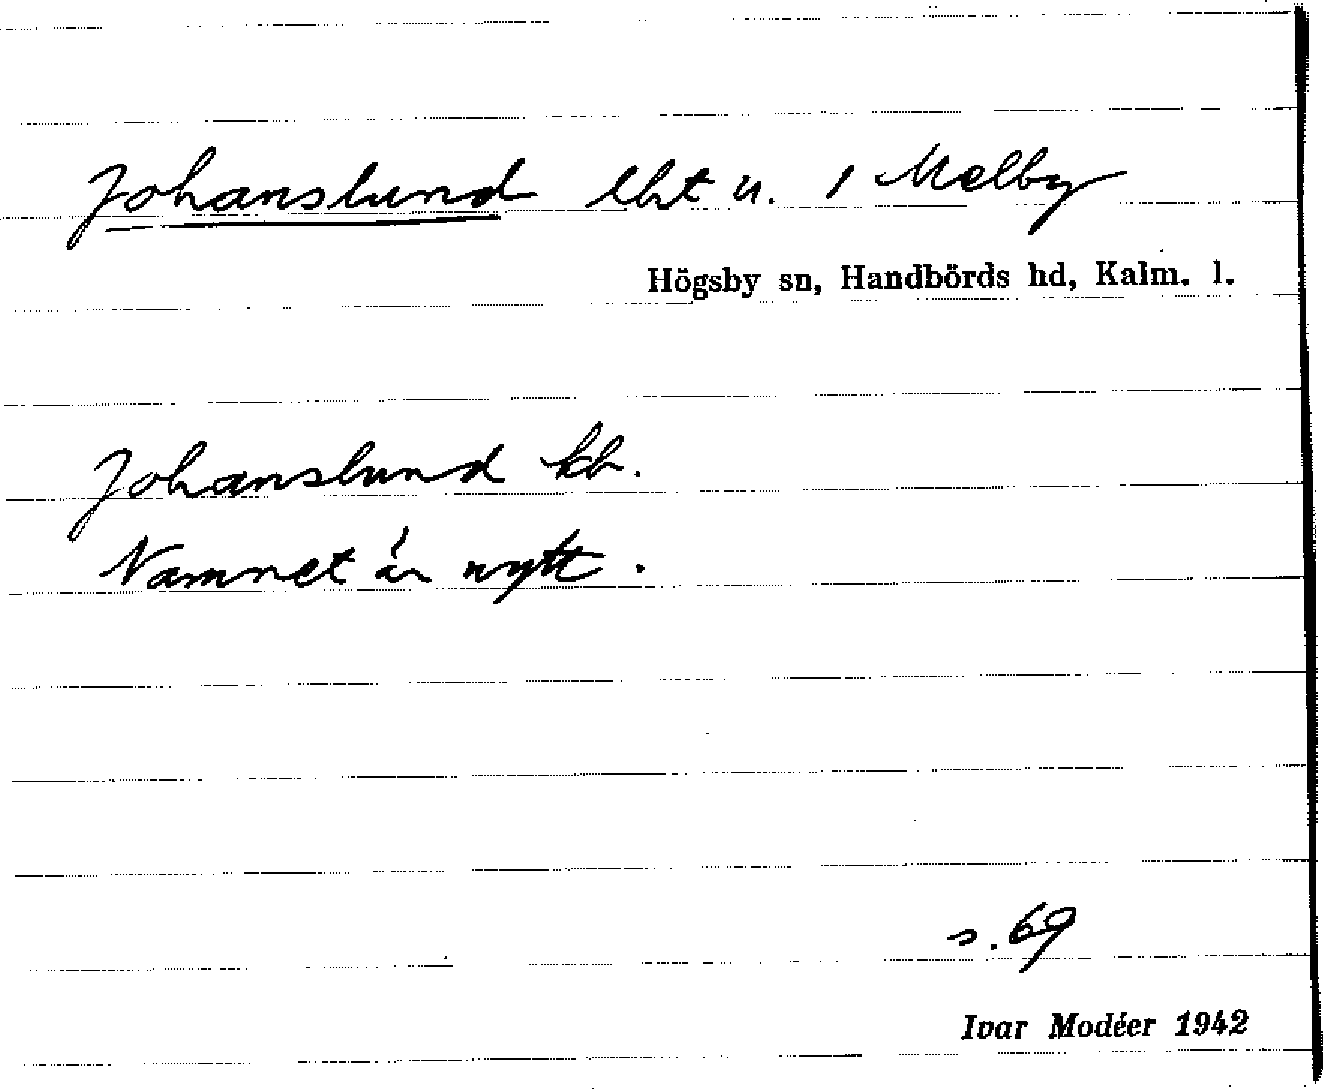 Johanslund lht u. 1 Melby
Högsby sn, Handbörds hd, Kalm. l.
Johanslund kb.
Namnet är nytt.
s. 69
Ivar Modéer 1942